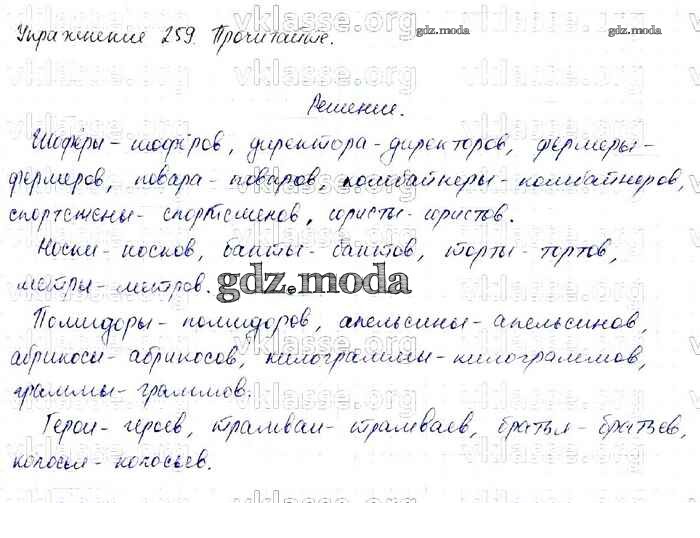 Упражнение 259. Прочитайте.
gdz.moda gdz.moda
Решение.
Шофёры - шофёров, директора - директоров, фермеры -
фермеров, повара - поваров, комбайнеры - комбайнеров,
спортсмены - спортсменов, юристы - юристов.
Носки - носков, банты - бантов, торты - тортов,
метры - метров.
gdz.moda
Помидоры - помидоров, апельсины - апельсинов,
абрикосы - абрикосов, килограммы - килограммов,
граммы - граммов.
Герои - героев, трамваи - трамваев, братья - братьев,
колосья - колосьев.
vklasse.org